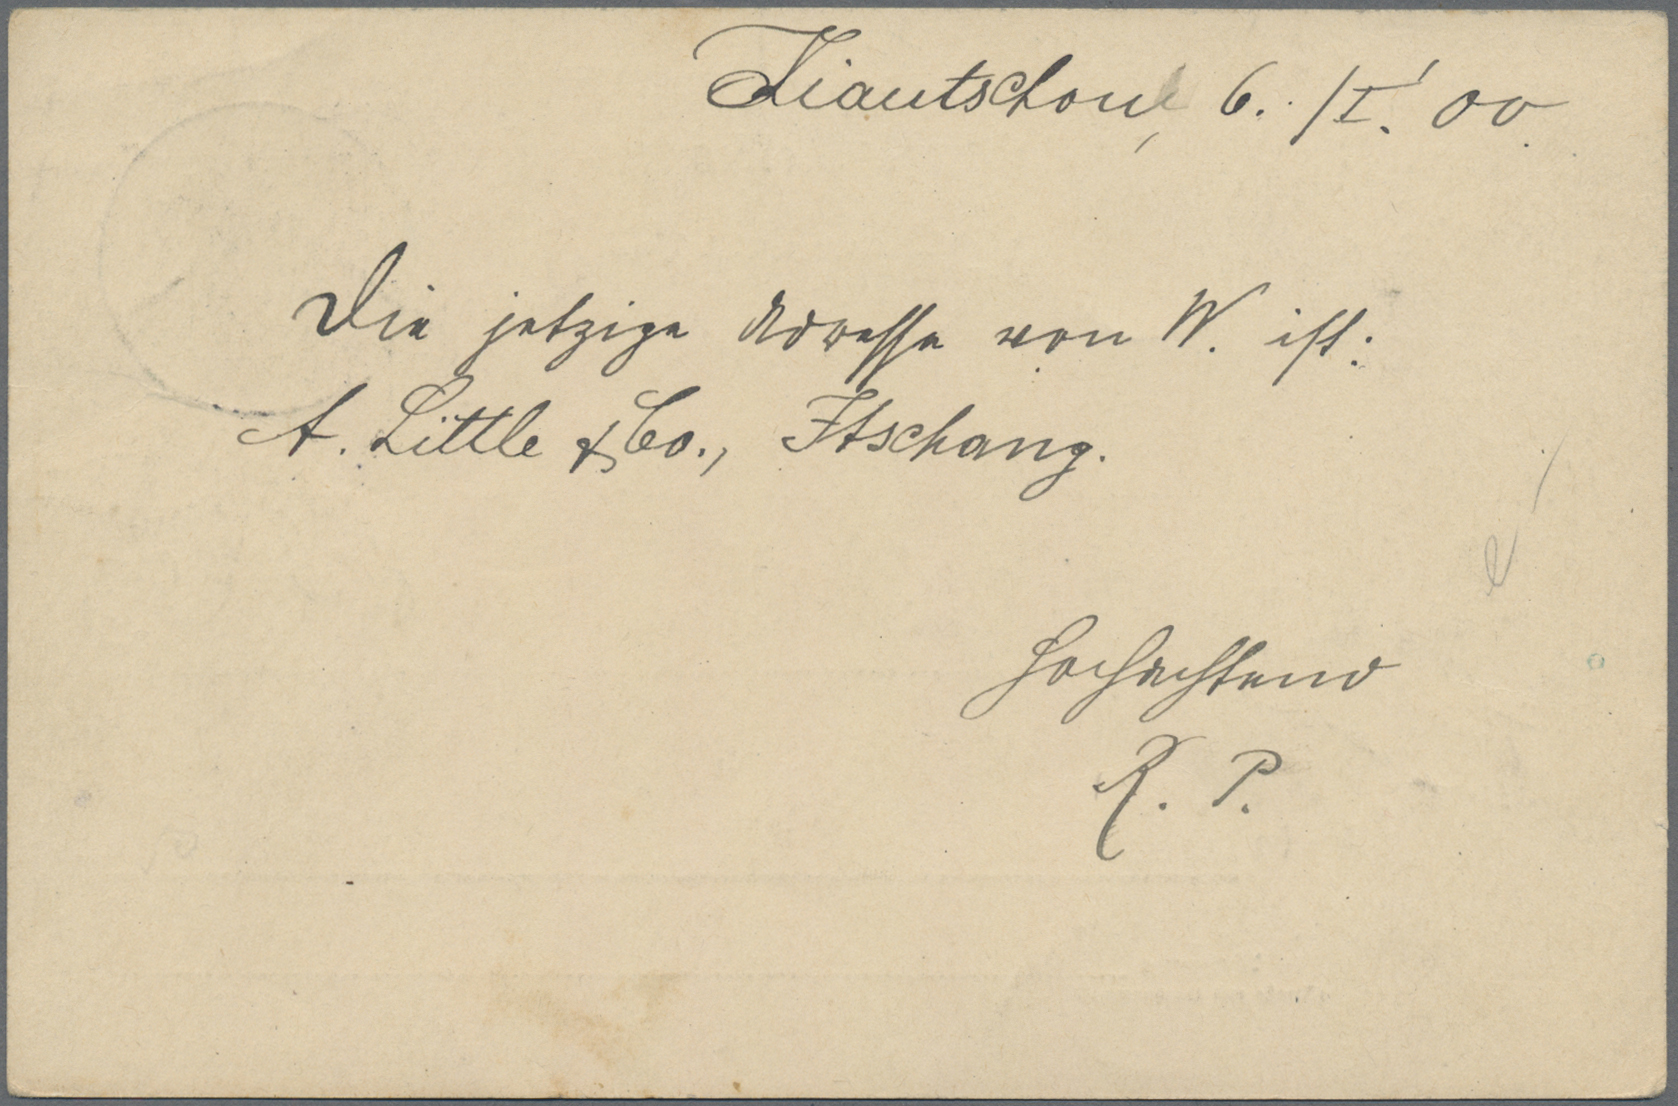 Kiautschou, 6./I. 00.
Die jetzige Adresse von W. ist:
A. Little & Co., Itschang.
Hochachtend
R. P.